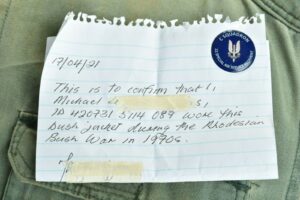 C SQUADRON
17/04/21
This is to confirm that I,
Michael
ID 420731 5114 089 wore this
bush jacket during the Rhodesian
Bush War in 1970s.